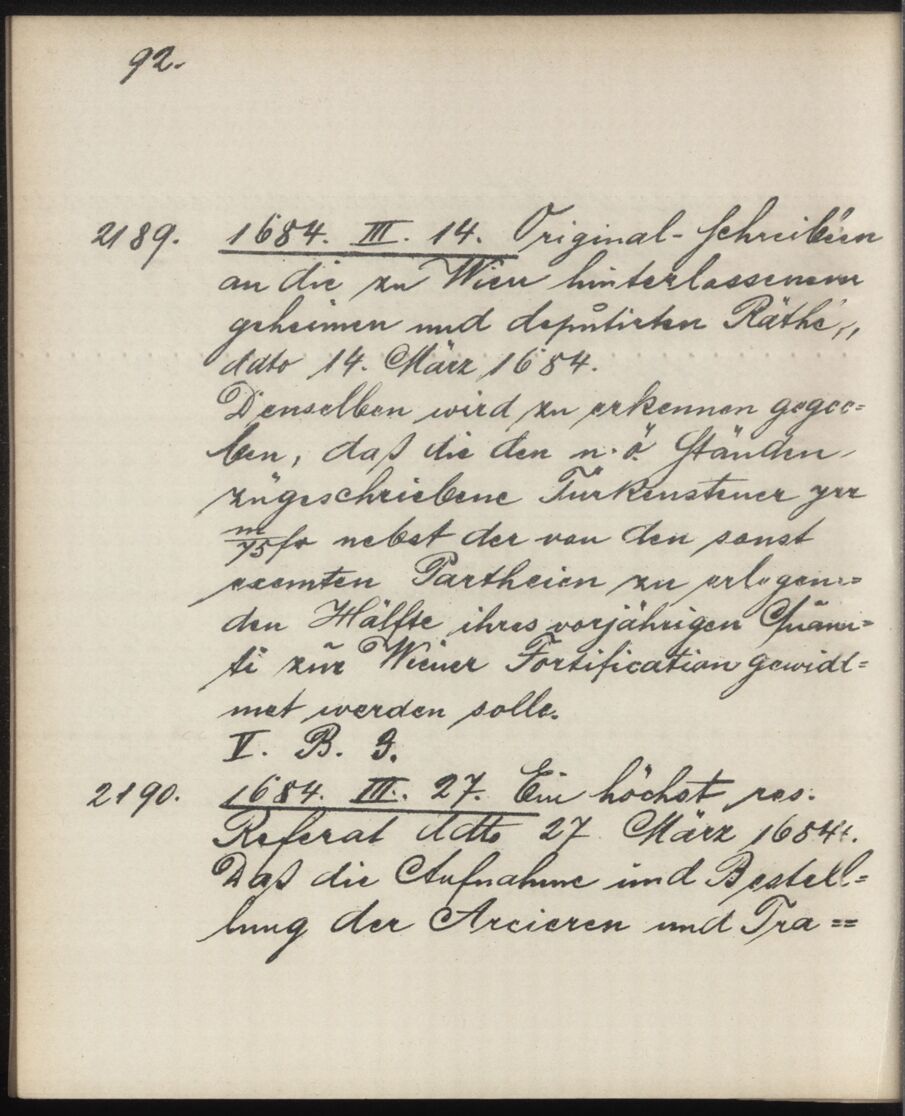 92.
2189. 1684. III. 14. Original-Schreiben
an die zu Wien hinterlassenen
geheimen und deputirten Räthe,
ddto 14. März 1684.
Denselben wird zu erkennen gege=
ben, daß die den n. ö. Ständen
zugeschriebene Türkensteuer per
m/75 fr nebst der von den sonst
exemten Partheien zu erlegen=
den Hälfte ihres vorjährigen Quan=
ti zur Wiener Fortification gewid=
met werden solle.
V. B. 3.
2190. 1684. III. 27. Ein höchst res.
Referat ddto 27 März 1684.
Daß die Aufnahme und Bestel=
lung der Arcieren und Tra=